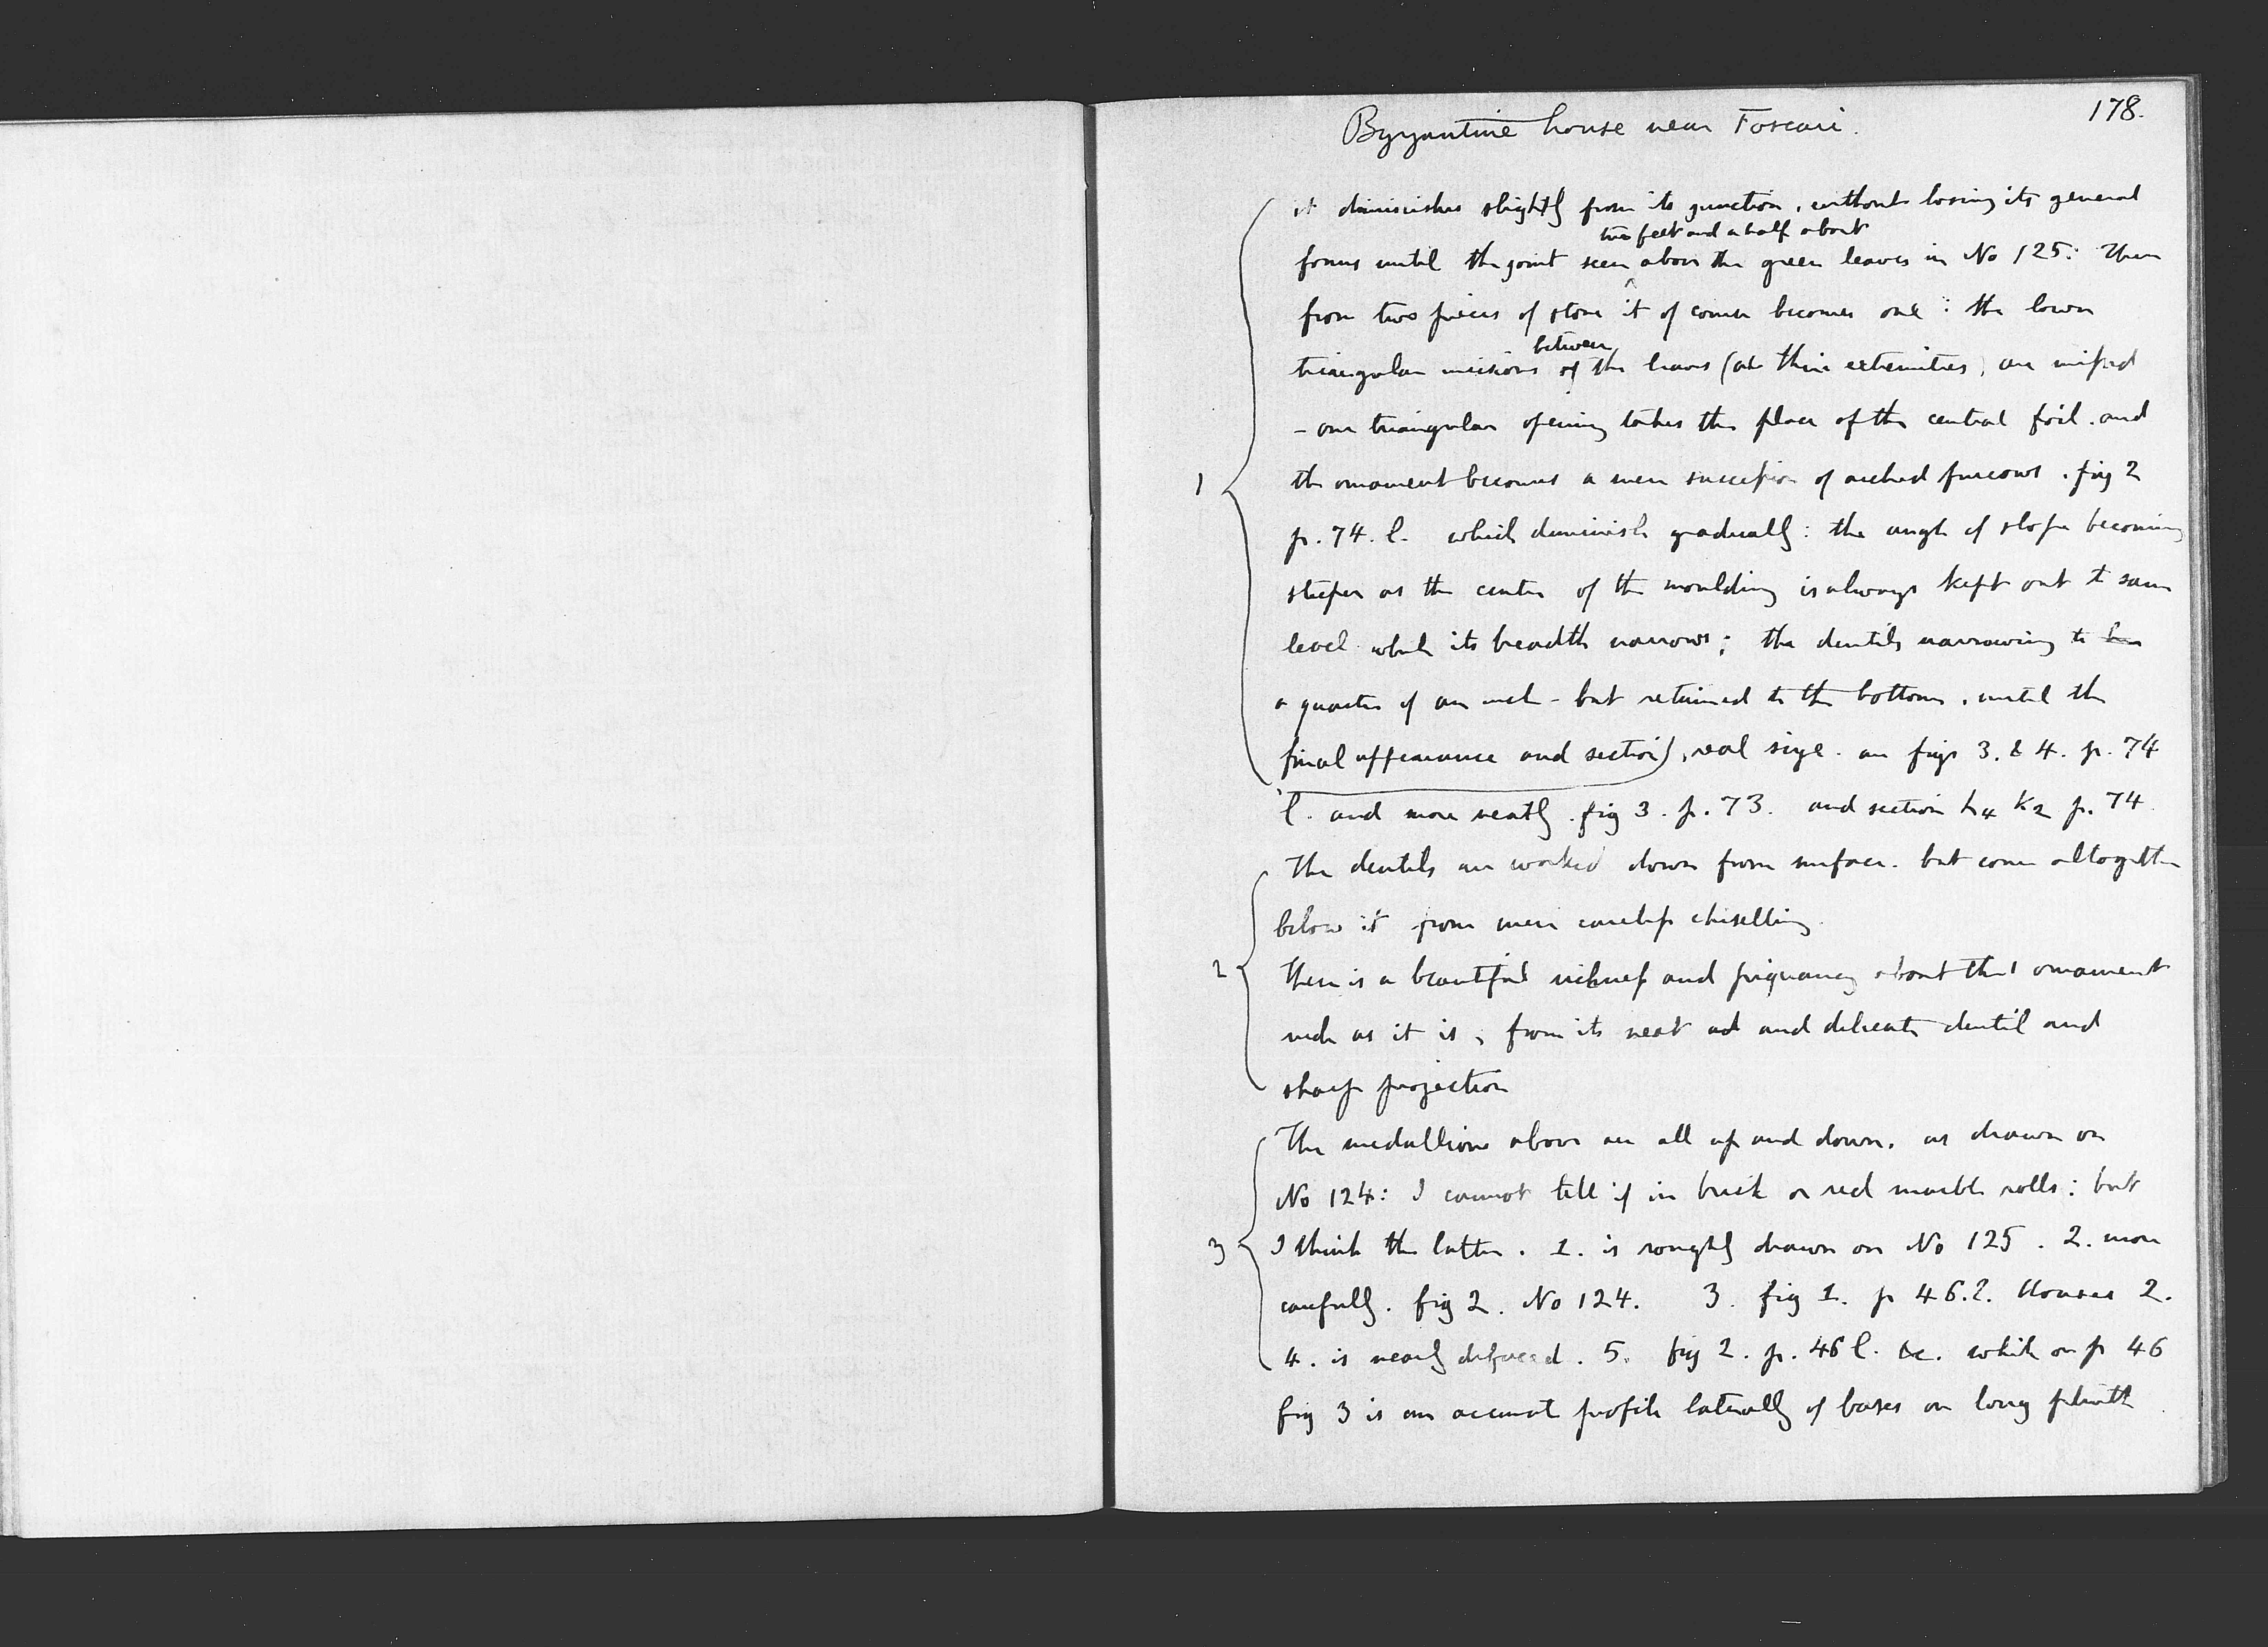 178.
Byzantine house near Foscari.
it diminishes slightly from its junction, without losing its general
two feet and a half about
forms until the joint seen above the green leaves in No 125: Then
from two pieces of stone it of course becomes one: the lower
between
triangular incisions of the leaves (at their extremities) are missed
- one triangular opening takes the place of the central foil. and
the ornament becomes a mere succession of arched furrows. fig 2
p. 74. l. which diminish gradually: the angle of slope becoming
steeper as the centre of the moulding is always kept out t same
level while its breadth narrows; the dentils narrowing to
a quarter of an inch - but retained to the bottom, until the
final appearance and section), real size. are figs 3. & 4. p. 74
l. and more neatly. fig 3. p. 73. and section h4 K2 p. 74
1
The dentils are worked down from surface. but come altogether
below it from mere careless chiselling.
There is a beautiful richness and piquancy about this ornament
rude as it is, from its neat ad and delicate dentil and
sharp projection
2
The medallions above are all up and down. as drawn on
No 124: I cannot tell if in brick or red marble rolls: but
I think the latter. 1. is roughly drawn on No 125. 2. more
carefully. fig 2. No 124. 3. fig 1. p 46.l. Houses 2.
4. is nearly defaced. 5. fig 2. p. 46 l. &c. while on p 46
3
fig 3 is an accurate profile laterally of bases on long plinth